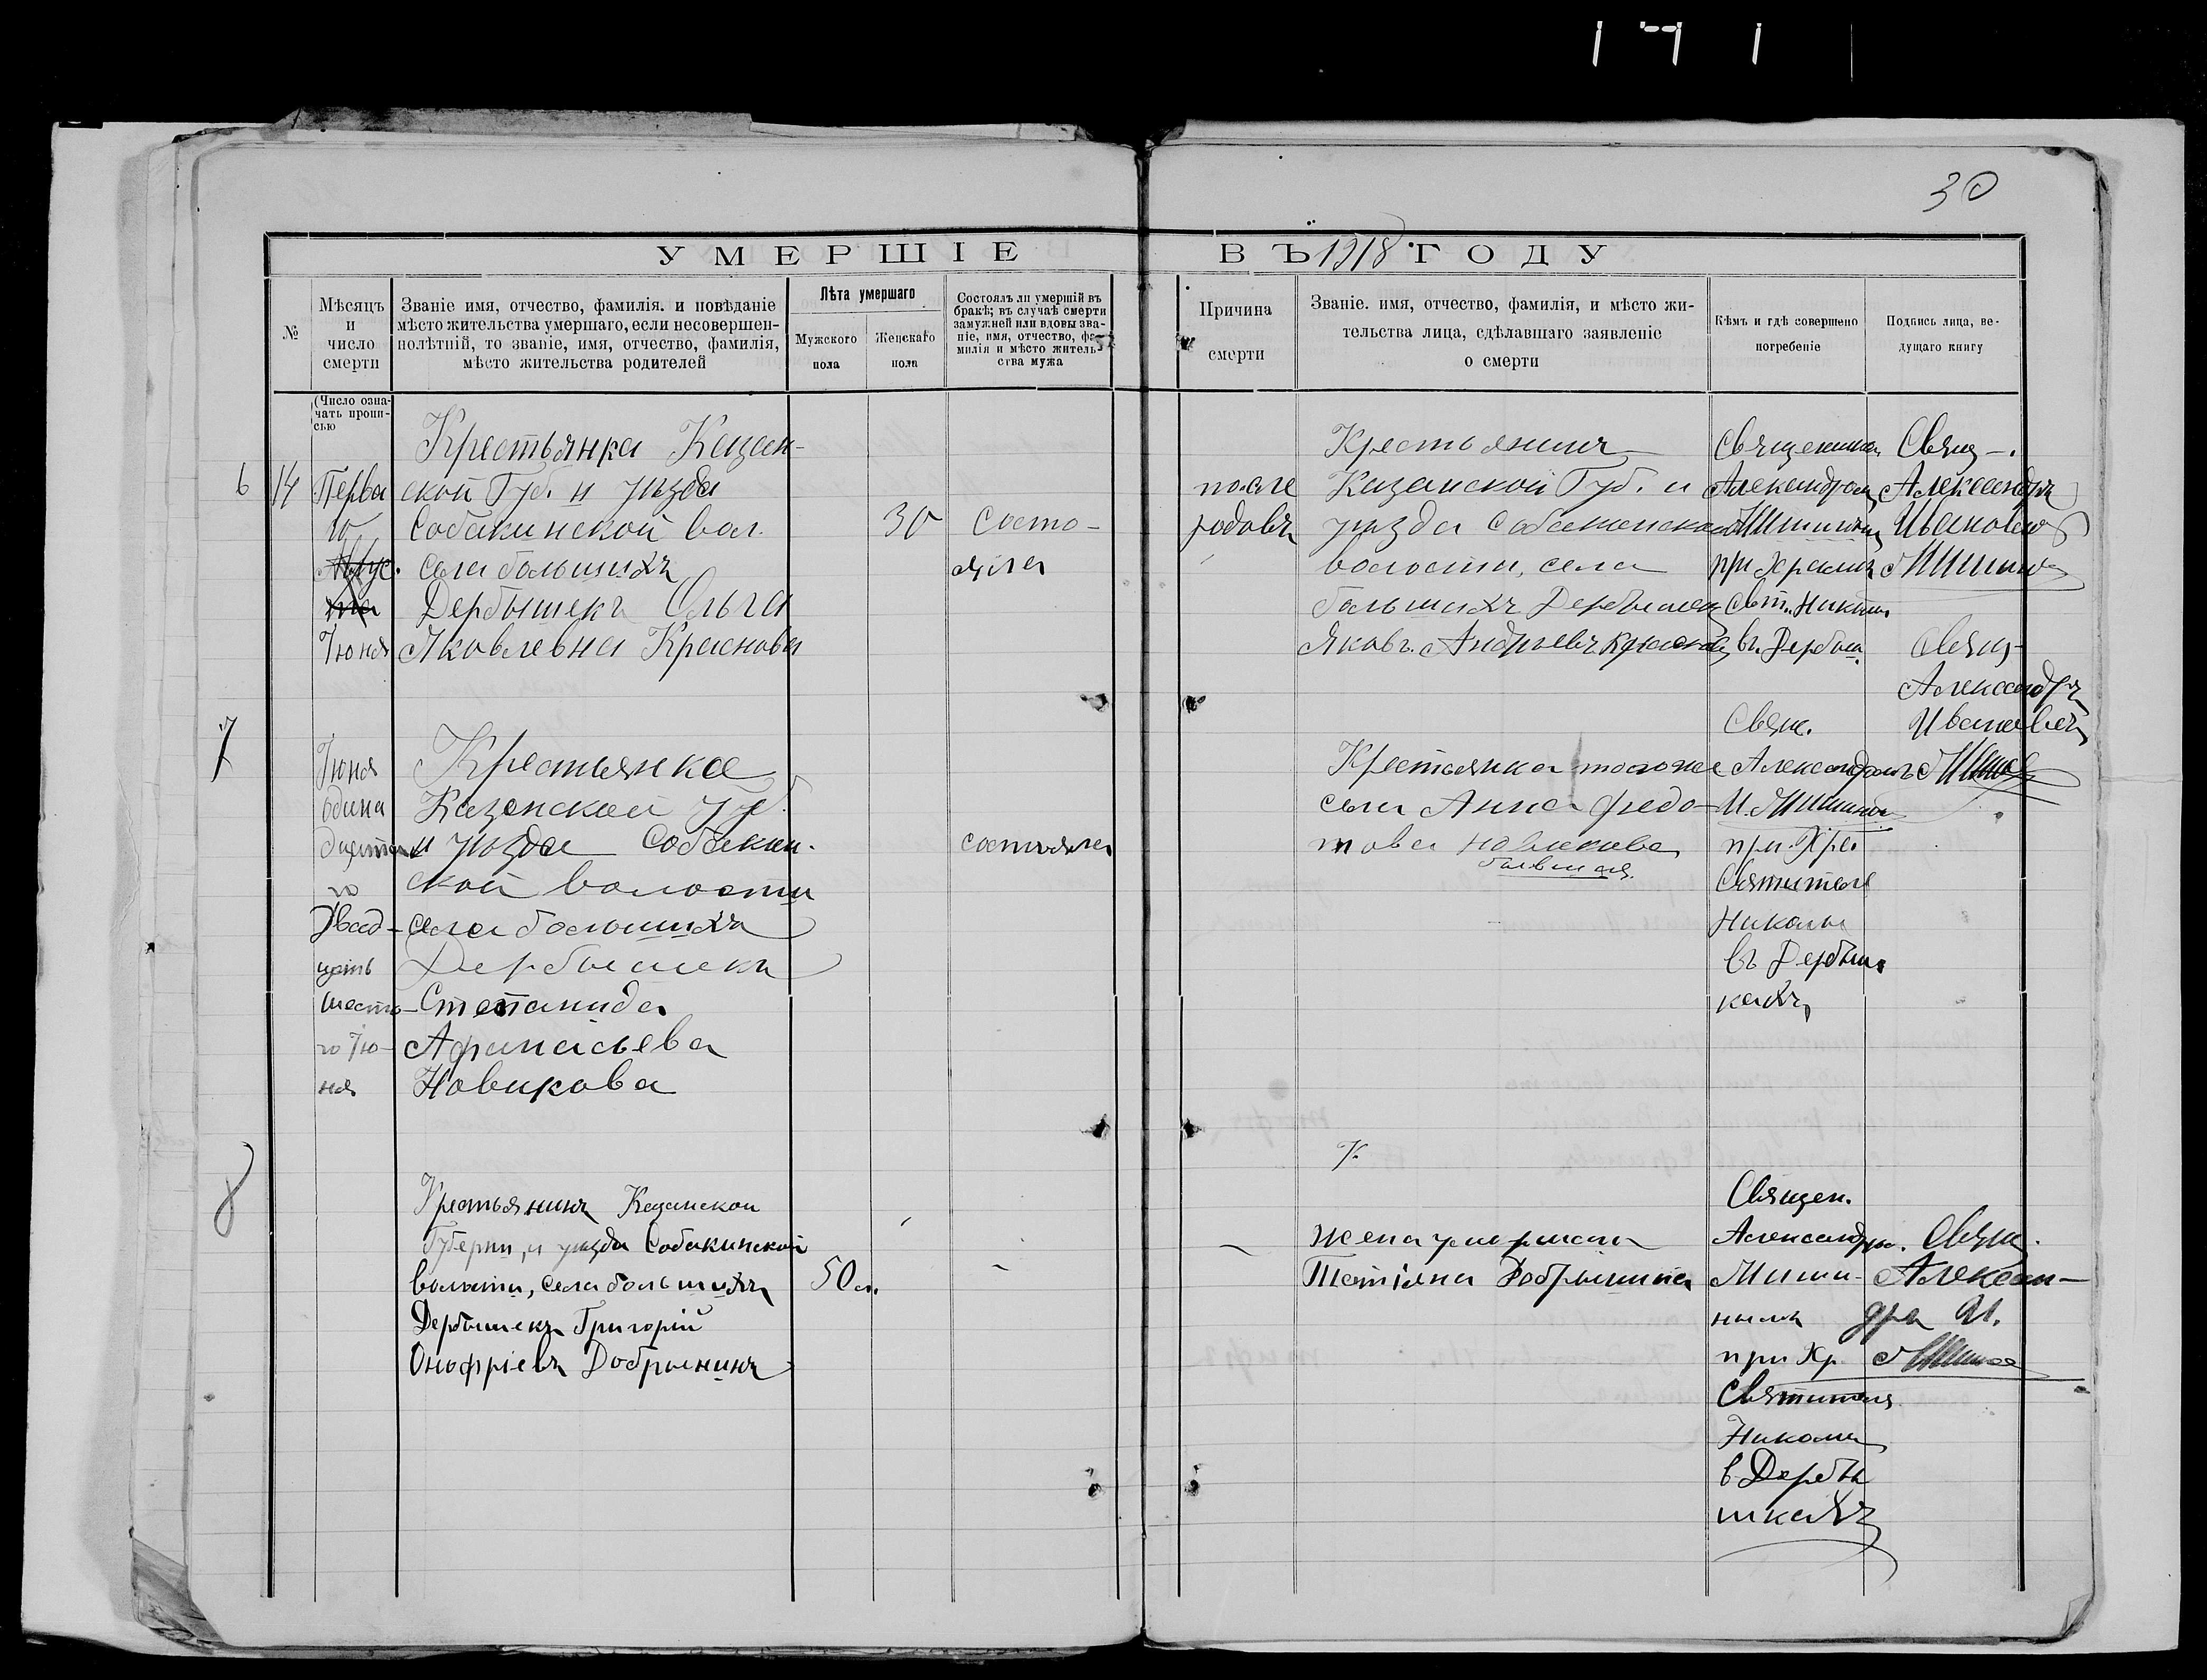 30
УМЕРШІЕ ВЪ 1918 ГОДУ
№
Мѣсяцъ
и
число
смерти
Званіе имя, отчество, фамилія. и повѣданіе
мѣсто жительства умершаго, если несовершен-
нолѣтній, то званіе, имя, отчество, фамилія,
мѣсто жительства родителей
Лѣта умершаго
Мужского
пола
Женскаго
пола
Состоялъ ли умершій въ
бракѣ; въ случаѣ смерти
замужней или вдовы зва-
ніе, имя, отчество, фа-
милія и мѣсто житель-
ства мужа
Причина
смерти
Званіе. имя, отчество, фамилія, и мѣсто жи-
тельства лица, сдѣлавшаго заявленіе
о смерти
Кѣмъ и гдѣ совершено
погребеніе
Подпись лица, ве-
дущаго книгу
(Число озна-
чать пропи-
сью
6
14
Перва
го
Авгус.
та
Іюня
Крестьянка Казан-
ской Губ. и уѣзда
Собакинской вол.
села большихъ
Дербышекъ Ольга
Яковлевна Краснова
30
Состо-
яла
после
родовъ
Крестьянинъ
Казанской Губ. и
уѣзда Собакинской
волости, села
большихъ Дербышек
Яковъ Андреевъ Краснов
Священником
Александром
Мишиным
при Храмѣ
Свят. Николы
въ Дербыш.
Свящ-.
Александръ
Ивановъ
Мишин
7
Іюня
одина
дцата
го
Двад-
цать
шесто-
го Ію-
ня
Крестьянка
Казанской Губ.
и уѣзда Собакин.
ской волости
села большихъ
Дербышекъ
Степанида
Афанасьева
Новикова
состояла
Крестьянка того же
села Анна Федо-
това Новикова
большая
Свящ.
Александромъ
И. Мишинъ
при Хра.
Святителя
Николы
въ Дербыш
кахъ
Свящ-
Александръ
Ивановичъ
Мишин
8
Крестьянинъ Казанской
Губерни, и уѣзда Собакинской
волости, села большихъ
Дербышекъ Григорій
Онофріевъ Добрынинъ
50 л.
К.
жена умершаго
Татіана Добрынина
Священ.
Александръ.
Миши-
нымъ
при Хр.
Святителя
Николы
в Дербы
шкахъ
Свящ.
Алексан-
дръ И.
Мишин